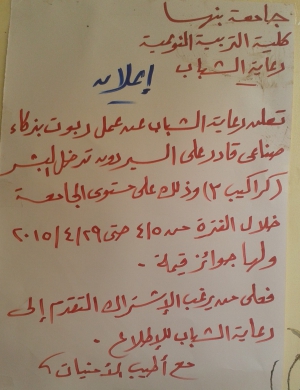 جامعة بنها
كلية التربية النوعية
رعاية الشباب
إعلان
تعلن رعاية الشباب عن عمل ربوت بذكاء
صناعى قادر على السير دون تدخل البشر
(كراكيب ٢) وذلك على مستوى الجامعة
خلال الفترة من ٤/٥ حتى ٢٠١٥/٤/٢٩
ولها جوائز قيمة .
فعلى من يرغب الإشتراك التقدم إلى
رعاية الشباب للإطلاع .
مع أطيب الأمنيات ،